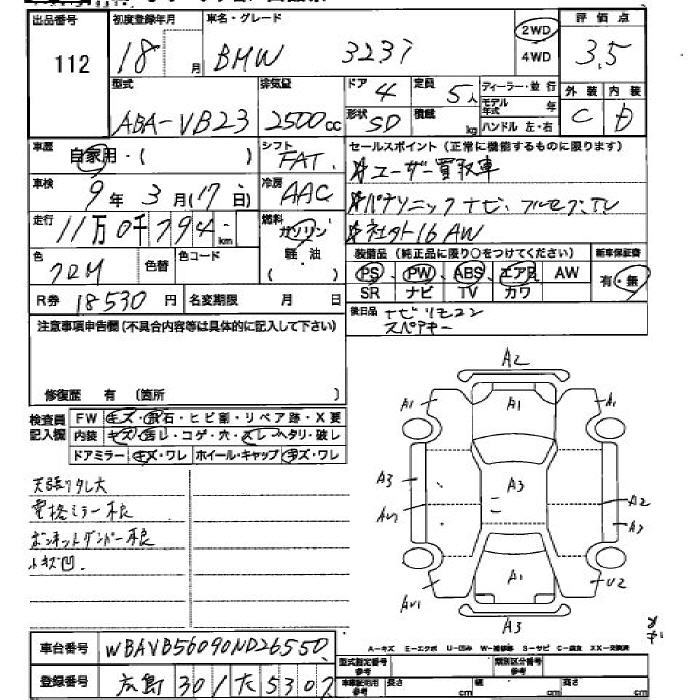 出品番号 112
初度登録年月 18 月
車名・グレード BMW 323i
2WD
4WD
評価点 3.5
型式 ABA-VB23
排気量 2500 cc
ドア 4
定員 5人
形状 SD
積載 kg
ディーラー・並行
モデル年式 年
ハンドル 左・右
外装 C
内装 D
車歴 自家用・( )
シフト FAT
セールスポイント (正常に機能するものに限ります)
☆ユーザー買取車
車検 9年3月(17日)
冷房 AAC
☆パナソニックナビ、フルセグTV
走行 11万0千794km
燃料 ガソリン
軽・油
( )
☆社外16AW
色 クロM
色替
色コード
装備品 (純正品に限り○をつけてください)
新車保証書
PS、PW、ABS、エアB、AW
SR ナビ TV カワ
有・無
R券 18530円
名変期限 月 日
後日品 ナビリモコン
スペアキー
注意事項申告欄(不具合内容等は具体的に記入して下さい)
修復歴 有 (箇所 )
検査員記入欄
FW キズ・飛石・ヒビ割・リペア跡・X要
内装 キズ・汚レ・コゲ・穴・スレ・ヘタリ・破レ
ドアミラー キズ・ワレ
ホイール・キャップ キズ・ワレ
天張りタレ大
電格ミラー不良
ボンネットダンパー不良
小キズ凹.
A2
A1 A1 A1
A3 A3 A2
A1
U2
A3
車台番号 WBAVB56090ND26550
A-キズ E-エクボ U-凹み W-補修跡 S-サビ C-腐食 XX-交換済
登録番号 広島 301 た 5302
型式指定番号 参考
類別区分番号 参考
車検証記載用 参考
長さ cm
幅 cm
高さ cm